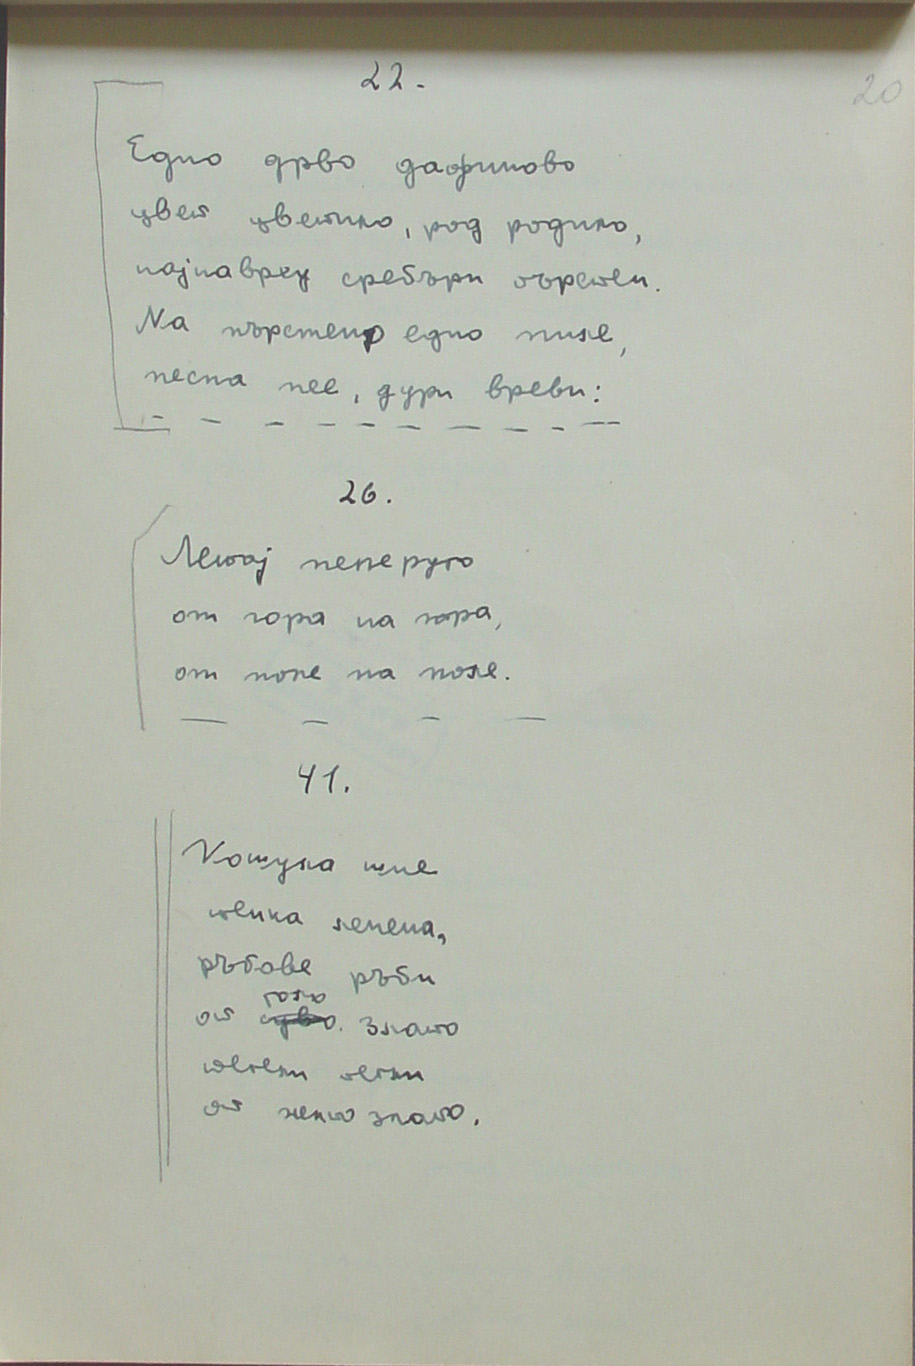 22.
20
Едно дрво дафиново
цвет цветило, род родило,
најнавред сребърн пърстен.
На пърстено едно пиле,
песна пее, дури вреви:
26.
Летај пеперуго
от гора на гора,
от поле на поле.
41.
Кошула шие
тенка ленена,
ръбове ръби
голо
от суво. злато
тегели тегли
от желто злато.